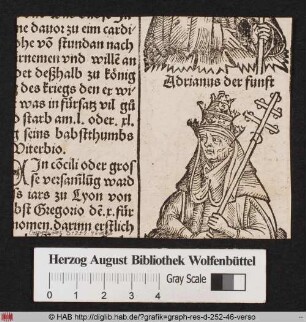 ne dauor zu eim cardi
öhe võ stundan nach
rnemen vnd willẽ an
et deßhalb zu königʼ
des kriegs den er wi
was in fürsatz vil gü
d starb am.l. oder .xl.
g seins babstthumbs
Viterbio.
In cõcili oder gros
se versamlũg ward
s iars zu Lyon von
bst Gregorio dẽ.x. für
nomen. darinn erstlich
Adrianus der funft
Herzog August Bibliothek Wolfenbüttel
Gray Scale
0 1 2 3 4
© HAB http://diglib.hab.de/?grafik=graph-res-d-252-46-verso